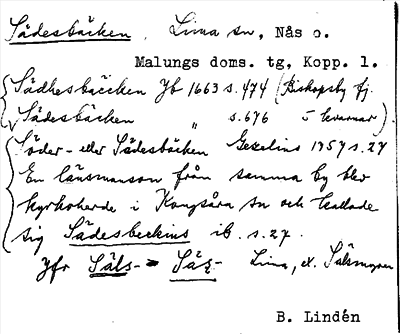 Sädesbäcken, Lima sn, Nås o.
Malungs doms. tg, Kopp. l.
Sädhesbäcken Jb 1663 s. 474 (Biskopsby fj.
Sädesbäcken " s. 676 5 kvarnar).
Söder- eller Sädesbäcken Gezelius 1957 s. 27
En länsmansson från samma by blev
kyrkoherde i Kongsåra sn och kallade
sig Sädesbeckius ib. s. 27.
Jfr Säls- Säx- Lima, el.
B. Lindén